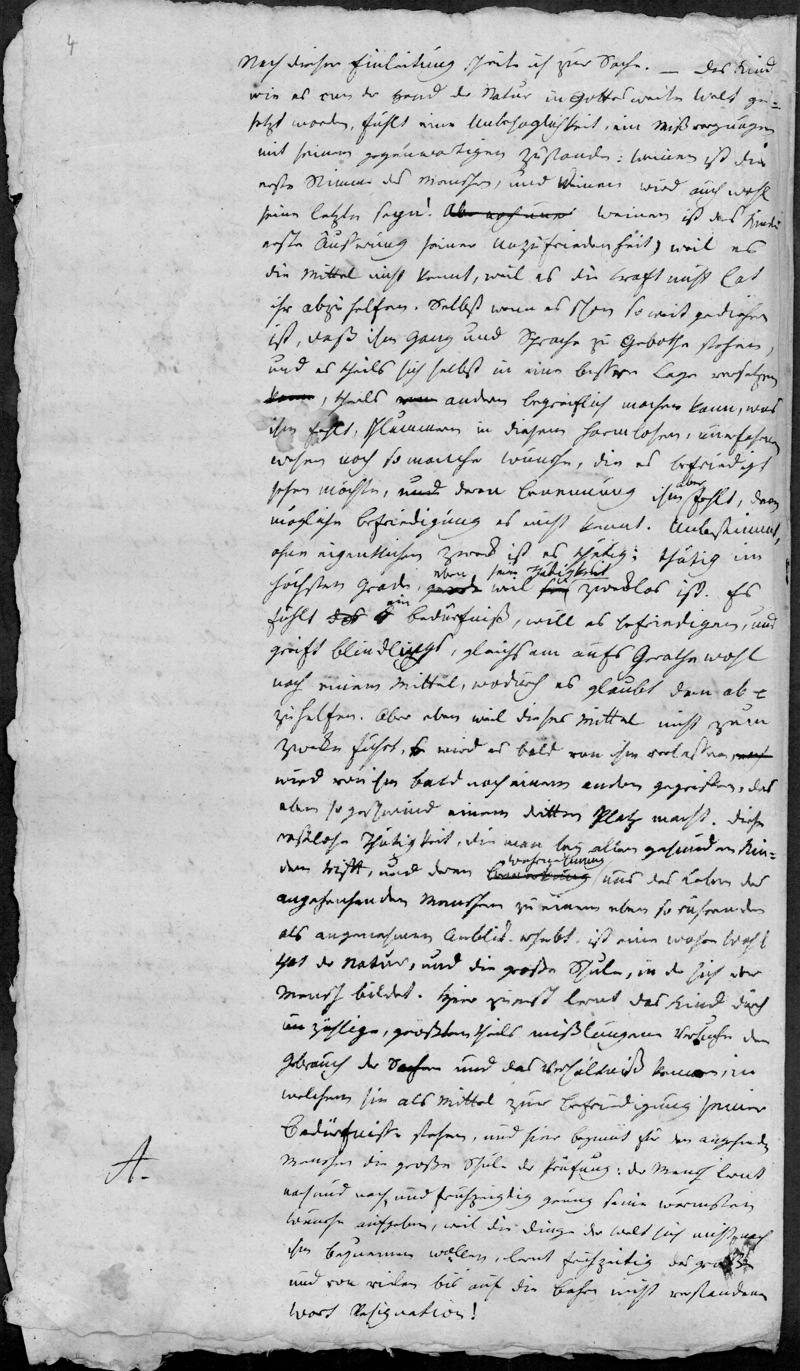 4
Nach dieser Einleitung schreite ich zur Sache. — Das Kind
wie es aus der Hand der Natur in Gottes weite Welt ge=
setzt worden, fühlt eine Unbehaglichkeit, ein Mißvergnügen
mit seinem gegenwärtigen Zustande: weinen ist die
erste Stimme des Menschen, und Weinen wird auch wohl
seine letzte seyn! Weinen ist des Kindes
erste Äußerung seiner Unzufriedenheit, weil es
die Mittel nicht kennt, weil es die Kraft nicht hat
ihr abzuhelfen. Selbst wenn es schon so weit gediehen
ist, daß ihm Gang und Sprache zu Gebothe stehen,
und es theils sich selbst in eine bessere Lage versetzen
kann, theils andern begreiflich machen kann, was
ihm fehlt, schlummern in diesem harmlosen, unerfahrnen
Wesen noch so manche Wünsche, die es befriedigt
sehen möchte, und deren Benennung ihm aber fehlt, deren
mögliche Befriedigung es nicht kennt. Unbestimmt,
ohne eigentlichen Zweck ist es thätig; thätig im
höchsten Grade, eben weil seine Thätigkeit zwecklos ist. Es
fühlt ein Bedürfniß, will es befriedigen, und
greift blindlings, gleichsam aufs Gerathewohl
nach einem Mittel, wodurch es glaubt dem ab=
zuhelfen. Aber eben weil dieses Mittel nicht zum
Zwecke führt, so wird es bald von ihm verlassen, und
wird von ihm bald nach einem andern gegriffen, das
eben so geschwind einem dritten Platz macht. Diese
rastlose Thätigkeit, die man bey allen gesunden Kin=
dern trifft, und deren Wahrnehmung uns das Leben des
angehenden Menschen zu einem eben so rührenden
als angenehmen Anblick erhebt, ist eine wahre Wohl
that der Natur, und die große Schule, in der sich der
Mensch bildet. Hier zuerst lernt das Kind durch
unzählige, größtentheils mißlungene Versuche den
Gebrauch der Sachen und das Verhältniß kennen, in
welchem sie als Mittel zur Befriedigung seiner
Bedürfnisse stehen, und hier beginnt für den angehenden
A. Menschen die große Schule der Prüfung: der Mensch lernt
nach und nach, und frühzeitig genug seine wärmsten
Wünsche aufgeben, weil die Dinge der Welt sich nicht nach
ihm bequemen wollen, lernt frühzeitig das große
und von vielen bis auf die Bahre nicht verstandene
Wort Resignation!